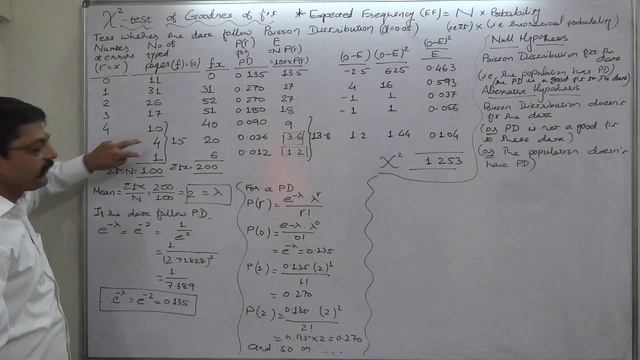 χ²-test of Goodness of fit * Expected Frequency (EF) = N × Probability
(ie EF) × (ie theoretical probability)
Test whether the data follow Poisson Distribution (α=0.05)
Number of errors (r=x)
No of typed pages (f)=(O)
fx
P(r) (P) PD
E =N P(r) =100×P(r)
(O-E)
(O-E)²
(O-E)² / E
0 11 0 0.135 13.5 -2.5 6.25 0.463
1 31 31 0.270 27 4 16 0.593
2 26 52 0.270 27 -1 1 0.037
3 17 51 0.180 18 -1 1 0.056
4 10 40 0.090 9
4 15 20 0.036 3.6 13.8 1.2 1.44 0.104
1 6 0.012 1.2
Σf=N=100 Σfx=200
χ² 1.253
Mean = Σfx/N = 200/100 = 2 = λ
If the data follow PD.
e^-λ = e^-2 = 1/e²
= 1/(2.71828)²
= 1/7.389
∴ e^-λ = e^-2 = 0.135
For a PD
P(r) = e^-λ λ^r / r!
P(0) = e^-λ λ⁰ / 0!
= e^-λ = 0.135
P(1) = 0.135 (2)¹ / 1!
= 0.270
P(2) = 0.135 (2)² / 2!
= 0.135×2 = 0.270
and so on ......
Null Hypothesis
Poisson Distribution fits the data
(ie the population has PD)
(or PD is a good fit to the data)
Alternative Hypothesis
Poisson Distribution doesn't fit the data
(or PD is not a good fit to these data)
(or The population doesn't have PD)